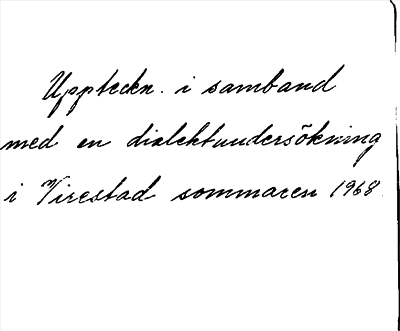 Uppteckn. i samband
med en dialektundersökning
i Virestad sommaren 1968.